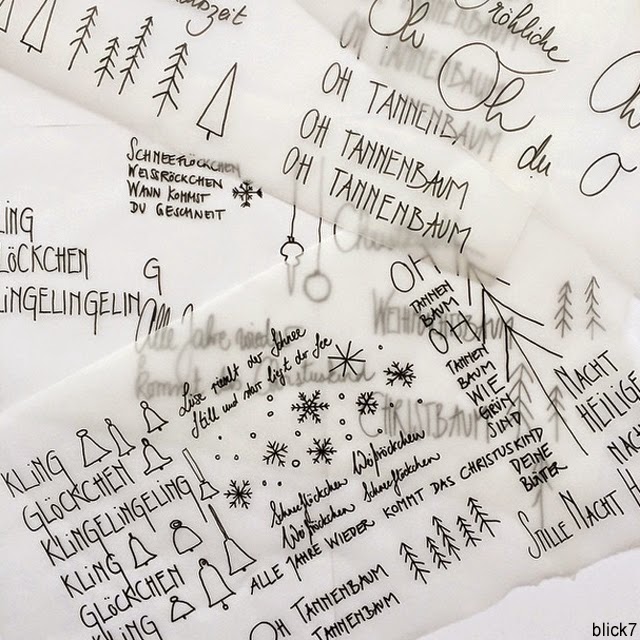 Fröhliche
OH TANNENBAUM
OH TANNENBAUM
OH TANNENBAUM
Oh du
SCHNEEFLÖCKCHEN
WEISSRÖCKCHEN
WANN KOMMST
DU GESCHNEIT
G
OH
TANNEN
BAUM
OH
TANNEN
BAUM
WIE
GRÜN
SIND
DEINE
BLÄTTER
WEIHNACHTSBAUM
CHRISTBAUM
Alle Jahre wieder
kommt das Christuskind
Leise rieselt der Schnee
Still und starr liegt der See
Schneeflöckchen Weißröckchen
Weißröckchen Schneeflöckchen
ALLE JAHRE WIEDER KOMMT DAS CHRISTUSKIND
KLING
GLÖCKCHEN
KLINGELINGELING
KLING
GLÖCKCHEN
KLING
OH TANNENBAUM
TANNENBAUM
NACHT
HEILIGE
STILLE NACHT
blick7